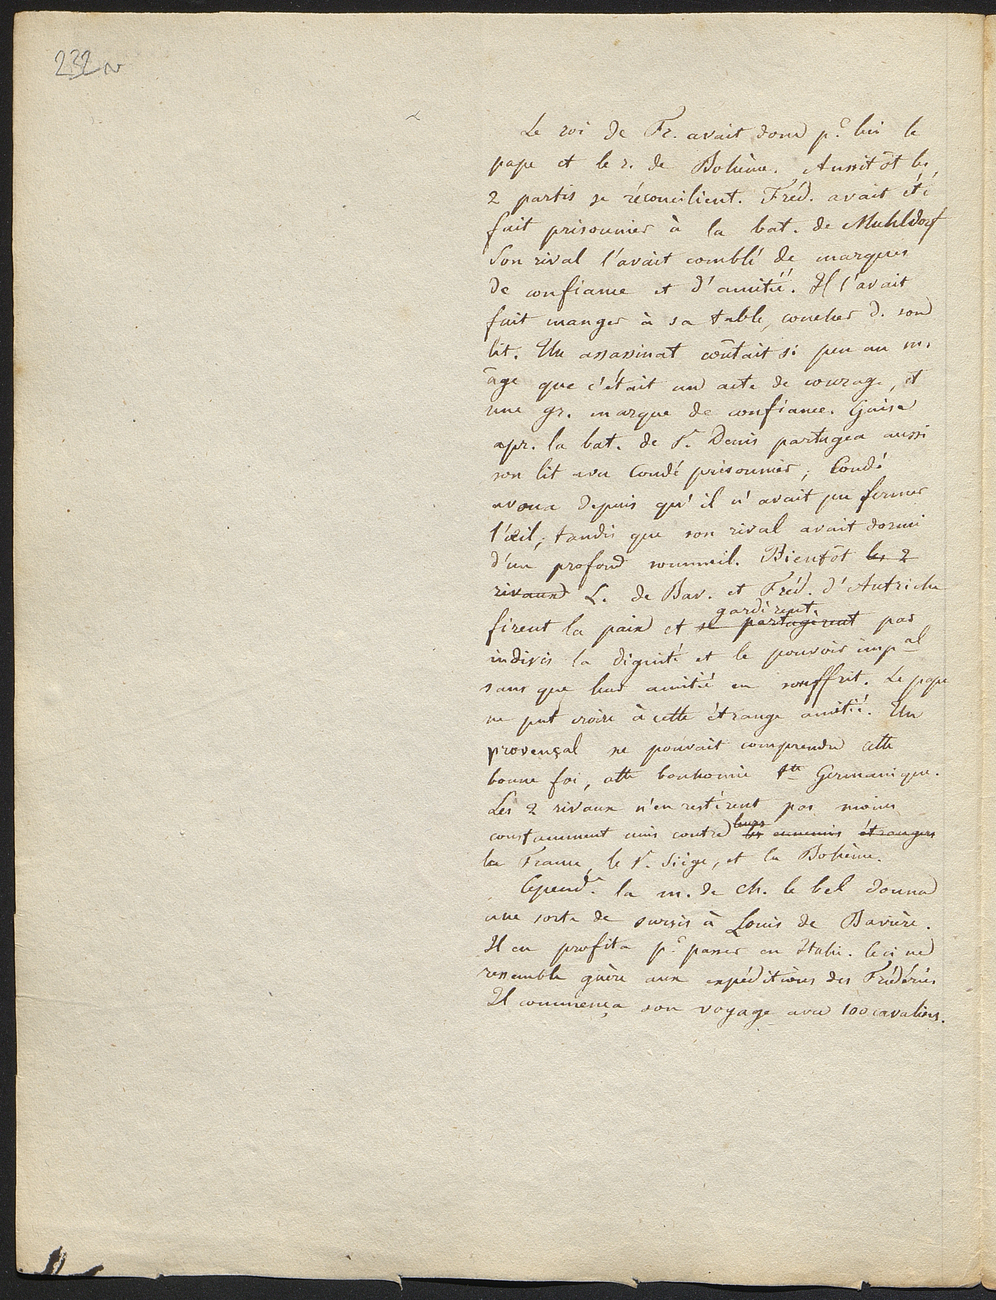 232 v
Le roi de Fr. avait donc pr. lui le
pape et le r. de Bohème. Aussitôt les
2 partis se réconcilient. Fréd. avait été
fait prisonnier à la bat. de Muhldorf
Son rival l'avait comblé de marques
de confiance et d'amitié. Il l'avait
fait manger à sa table, coucher d. son
lit. Un assassinat coûtait si peu au m.
âge que c'était un acte de courage, et
une gr. marque de confiance. Guise
apr. la bat. de St. Denis partagea aussi
son lit avec Condé prisonnier; Condé
avoua depuis qu'il n'avait pu fermer
l'œil, tandis que son rival avait dormi
d'un profond sommeil. Bientôt les 2
rivaux L. de Bav. et Fréd. d'Autriche
gardèrent
firent la paix et se partagèrent par
indivis la dignité et le pouvoir impal
sans que leur amitié en souffrit. Le pape
ne put croire à cette étrange amitié. Un
provençal ne pouvait comprendre cette
bonne foi, cette bonhomie tte Germanique.
Les 2 rivaux n'en restèrent pas moins
leurs
constamment unis contre les ennemis étrangers
la France, le St. Siège, et la Bohème.
Cepend.t la m. de Ch. le bel donna
une sorte de sursis à Louis de Bavière.
Il en profita pr. passer en Italie. Ceci ne
ressemble guère aux expéditions des Frédérics
Il commença son voyage avec 100 cavaliers.